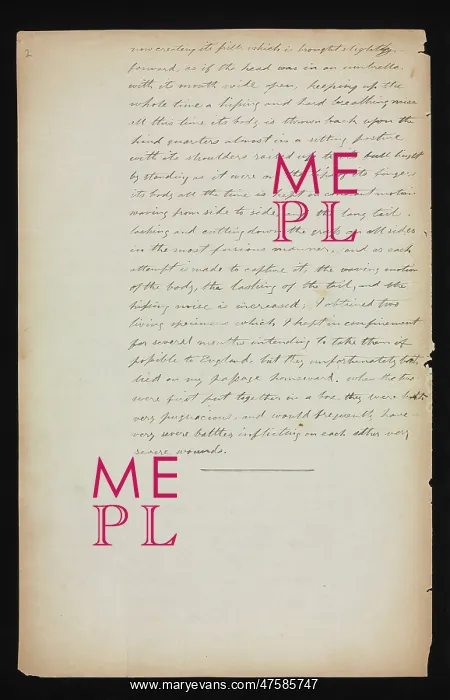 2
now erecting its frill which is brought slightly
forward, as if the head was in an umbrella
with its mouth wide open, keeping up the
whole time a hissing and hard breathing noise
all this time its body is thrown back upon the
hind quarters almost in a sitting posture
with its shoulders raised up to its full height
by standing as it were on the tips of its fingers
its body all the time is kept in constant motion
moving from side to side and the long tail
lashing and cutting down the grass on all sides
in the most furious manner, and as each
attempt is made to capture it, the waving motion
of the body, the lashing of the tail, and the
hissing noise is increased; I obtained two
living specimens which I kept in confinement
for several months intending to take them if
possible to England but they unfortunately both
died on my passage homeward. when the two
were first put together in a box they were both
very pugnacious, and would frequently have
very severe battles inflicting on each other very
severe wounds.
ME
PL
ME
PL
www.maryevans.com /47585747